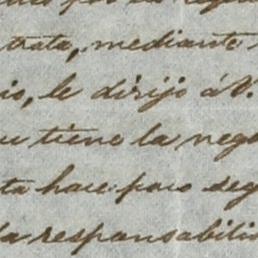 trata, mediante
io, le dirijo á V.
tiene la neg
ta hace poco seg
la responsabili